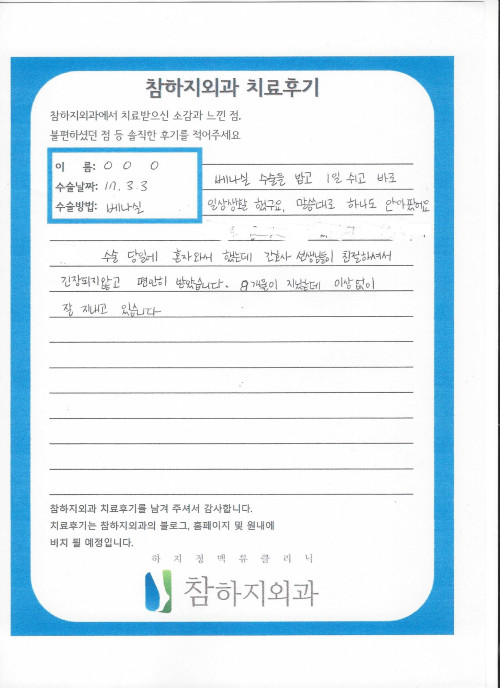 참하지외과 치료후기
참하지외과에서 치료받으신 소감과 느낀 점,
불편하셨던 점 등 솔직한 후기를 적어주세요
이 름: O O O
수술날짜: 17. 3. 3
수술방법: 베나실
베나실 수술을 받고 1일 쉬고 바로
일상생활 했구요, 말씀대로 하나도 안아팠어요
수술 당일에 혼자와서 했는데 간호사 선생님들이 친절하셔서
긴장되지않고 편안히 받았습니다. 8개월이 지났는데 이상 없이
잘 지내고 있습니다
참하지외과 치료후기를 남겨 주셔서 감사합니다.
치료후기는 참하지외과의 블로그, 홈페이지 및 원내에
비치 될 예정입니다.
하지정맥류클리닉
참하지외과